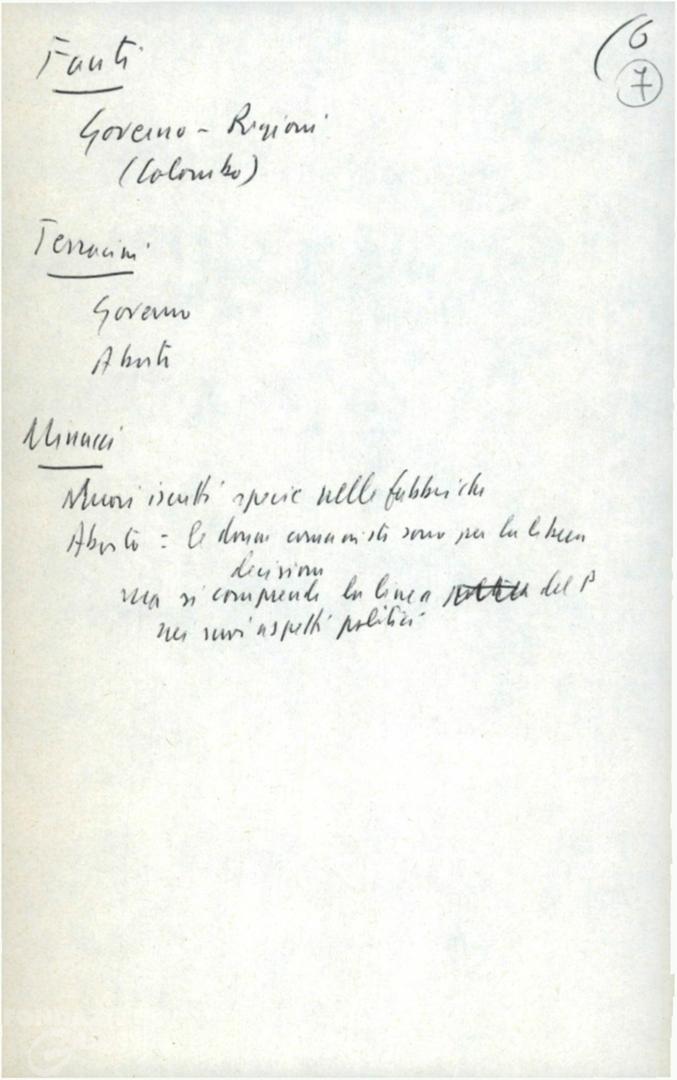 6
7
Fanti
Governo - Regioni
(Colombo)
Terracini
Governo
Aborto
Minucci
Nuovi iscritti specie nelle fabbriche
Aborto = le donne comuniste sono per la libera
decisione
ma si comprende la linea politica del P
nei suoi aspetti politici